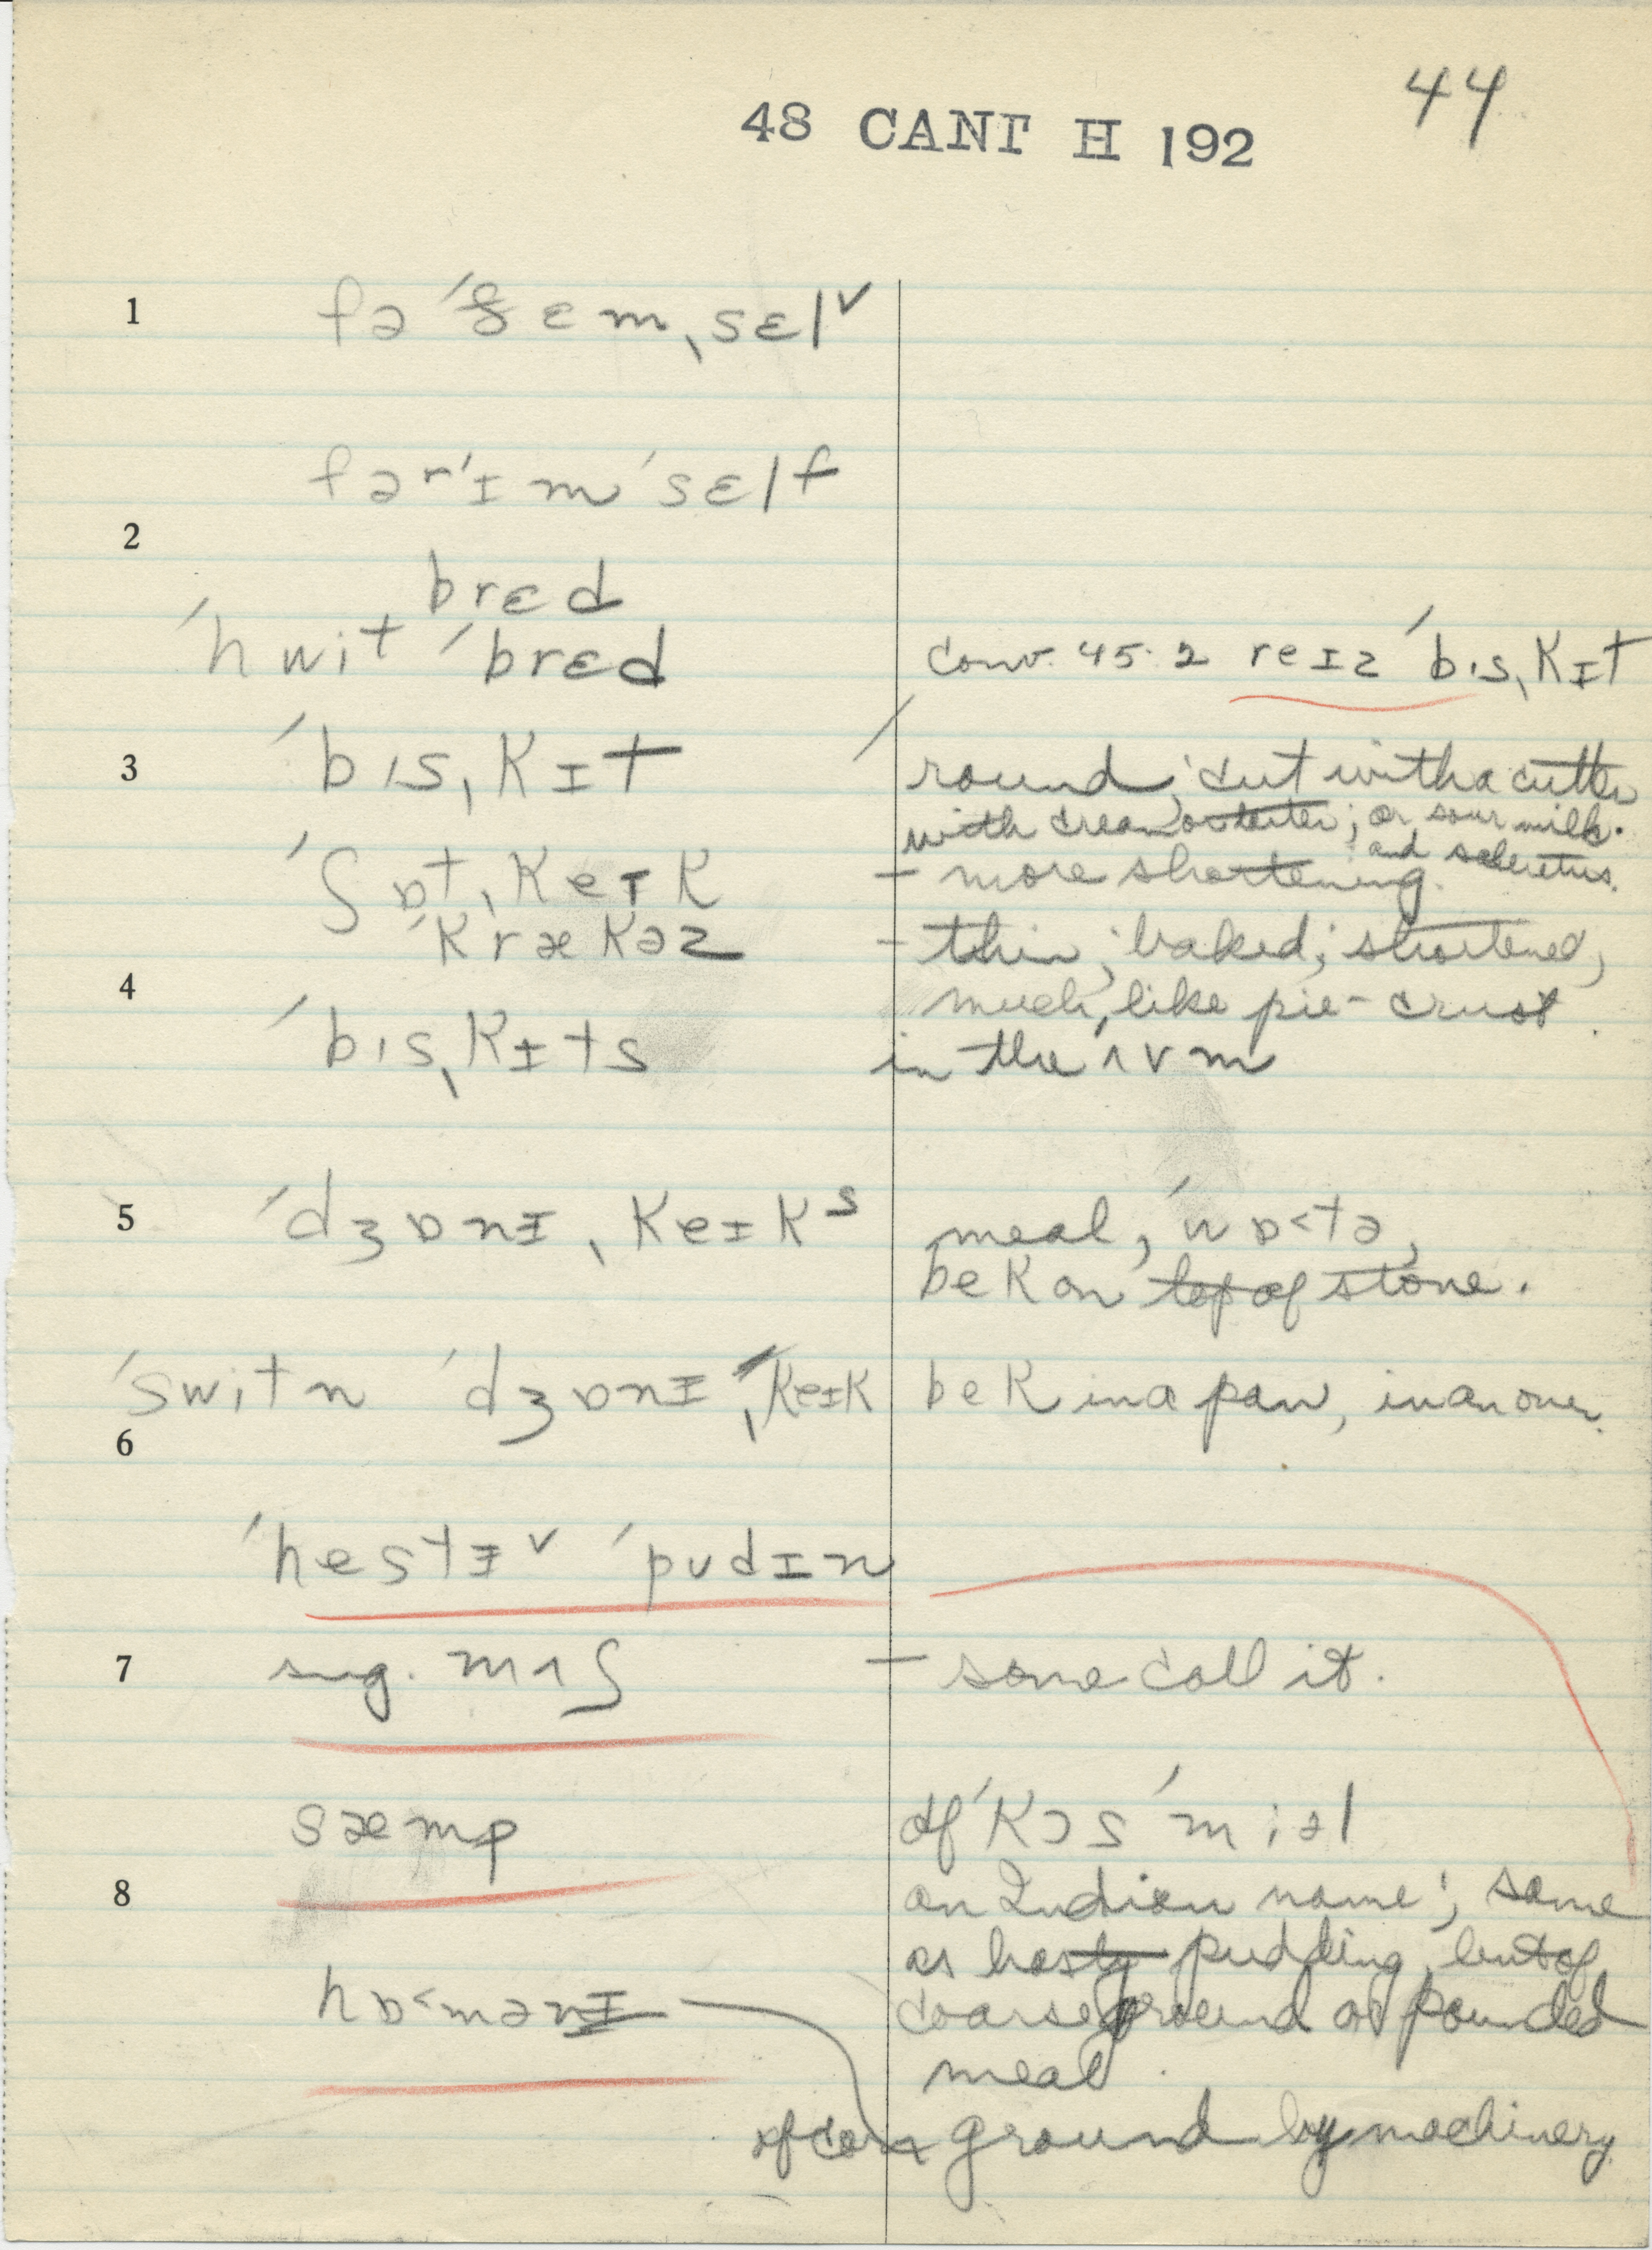 44
48 CANT H 192
1 fə ˈðɛmˌsɛl˅
fərˈɪmˈsɛlf
2
brɛd
ˈhwit ˈbrɛd conv. 45.2 reɪz ˈbɪsˌkɪt
3 ˈbɪsˌkɪt round; cut with a cutter
with cream o tarter; or sour milk.
and saleretus.
ˈʃɒtˌkeɪk – more shortening.
ˈkrækəz – thin; baked; shortened,
4 much like pie-crust
ˈbɪsˌkɪts in the ˈʌvm
5 ˈdʒɒnɪˌkeɪkˢ meal, ˈwɒ˂tə,
bek on top of stone.
ˈswitn ˈdʒɒnɪˌkeɪk bek in a pan, in an oven.
6
ˈhestɪ˅ ˈpudɪn
7 sug. mʌʃ – some call it.
sæmp of ˈkɔs ˈmiəl
8 an Indian name; same
as hasty pudding, but of
hɒ˂mənɪ coarse ground or pounded
meal.
of corn ground by machinery